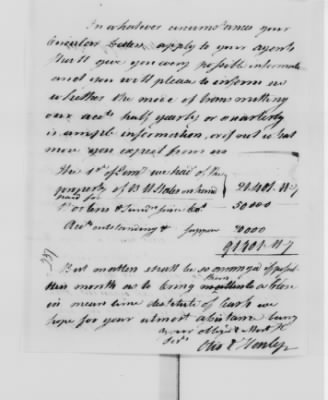 In whatever circumstances your
Circular Letters apply to your agents
shall give you every possible information
and you will please to inform us
whether the mode of transmitting
our accts half yearly or quarterly
is ample information, or if not what
more you expect from us
The 1st of we had of the
property of U States on hand 21.401.11/7
paid for
& Sund since 50000
Accts outstanding & suppose 20000
91401.11/7
337
But matters shall be so arranged if possible
this month as to bring to a close
in mean time the state of Cash we
hope for your utmost assistance being
your oblig'd & Most H
Otis & Henley